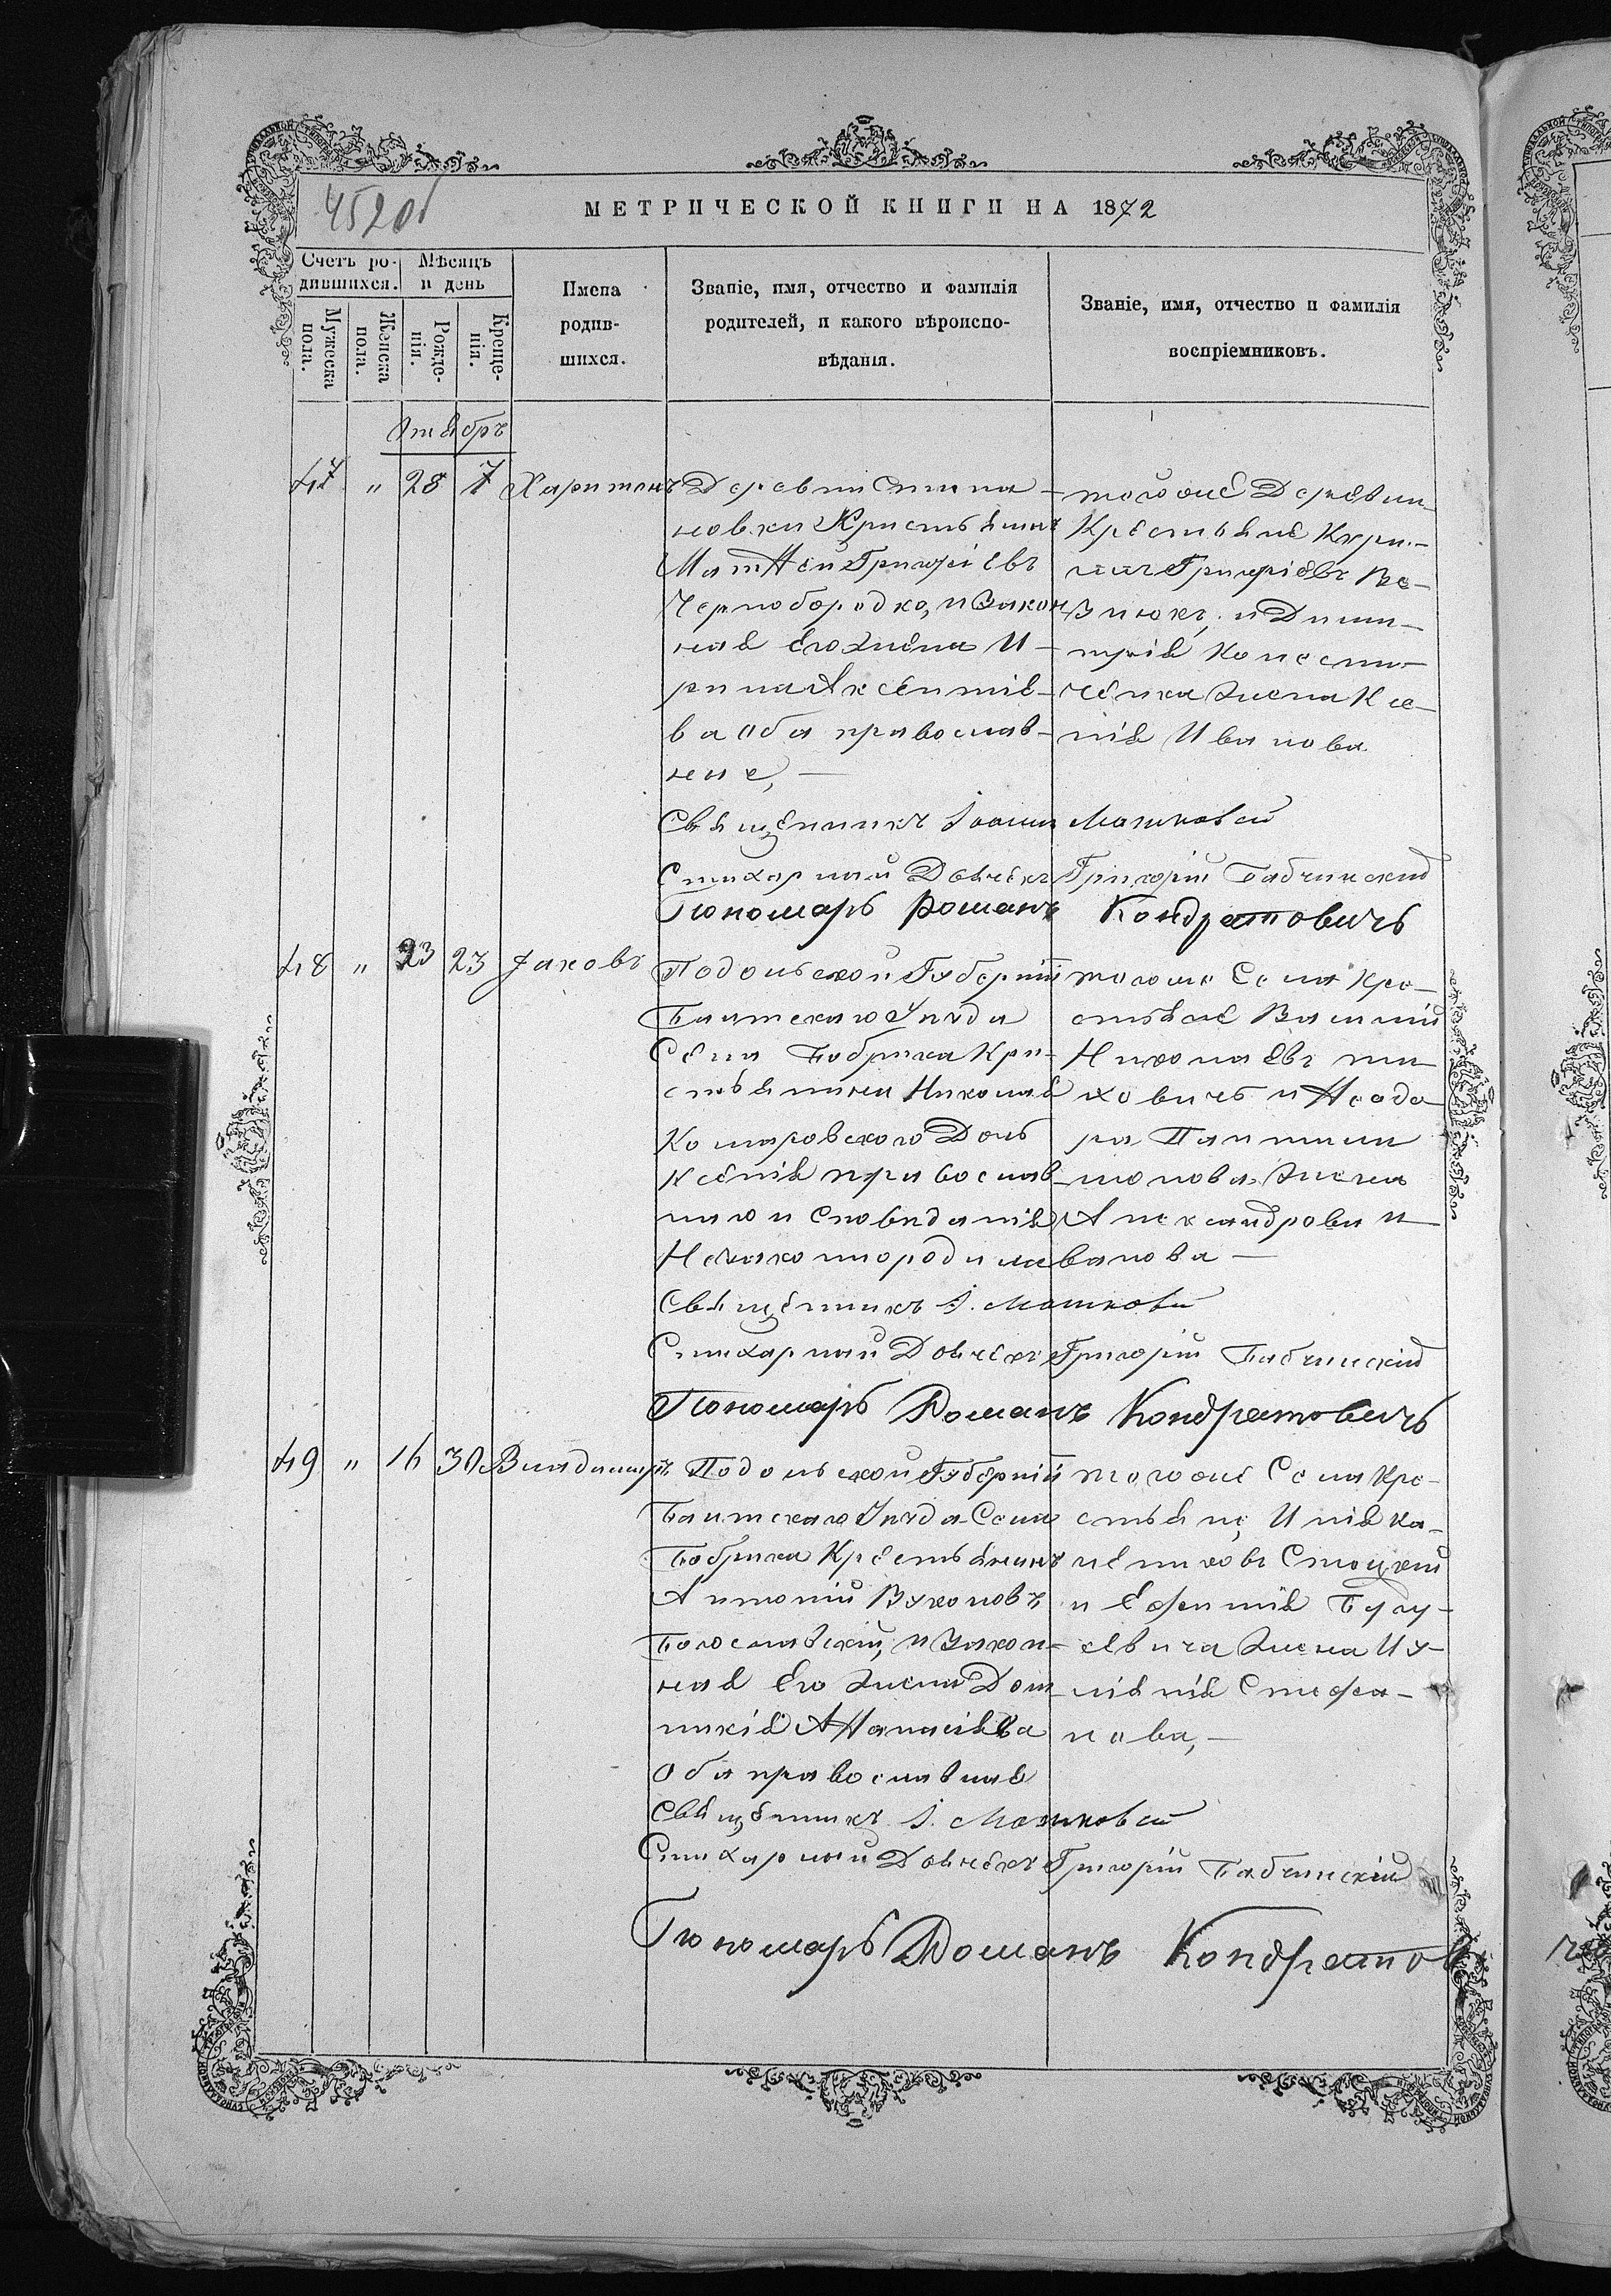 452об
МЕТРИЧЕСКОЙ КНИГИ НА 1872
Счетъ ро-
дившихся.
Мѣсяцъ
и день
Мужеска
пола.
Женска
пола.
Рожде-
нія.
Креще-
нія.
Имена
родив-
шихся.
Званіе, имя, отчество и фамилія
родителей, и какого вѣроиспо-
вѣданія.
Званіе, имя, отчество и фамилія
воспріемниковъ.
47 " 28 7 Харитонъ
Деревни
новки Кристьянинъ
Матѳей Григоріевъ
Чернобородко, и Закон
ная Его Жена И-
рина Аксентіе-
ва Оба православ-
ные,
тогоже Деревни
Крестьяне Кири-
илъ Григоріевъ
и Дими-
трія
ченка Жена Ксе-
нія Иванова
Священникъ Іоаннъ Машковскій
Стихарный Дьячекъ Григорій Бабчинскій
Пономарь Романъ Кондратовичъ
48 " 23 23 Іаковъ
Подольской Губерніи
Балтскаго Уѣзда
Села Бобрика Кри-
стьянина Николая
Комаровского Дочь
Ксенія православ-
наго исповиданія
Незаконнородила
тогоже Села Кре-
стьяне Василій
Николаевъ
ховичъ и Ѳеодо
ра Пантели
монова Жена
Александрова И-
ванова
Священникъ І. Машковскій
Стихарный Дьячекъ Григорій Бабчинскій
Пономарь Романъ Кондратовичъ
49 " 16 30 Владимиръ
Подольской Губерніи
Балтскаго Уѣзда Села
Бобрика Крестьянинъ
Антоній Вуколовъ
Богославскій, и Закон-
ная Его Жена Дом-
никія Аѳанасіева
Оба православная
тогоже Села Кре-
стьяне, Илія Ка-
лениковъ Стоцкій
и Ефимія
евича Жена Иу-
ліянія Стефа-
нова,
Священникъ І. Машковскій
Стихарный Дьячекъ Григорій Бабчинскій
Пономарь Романъ Кондратов